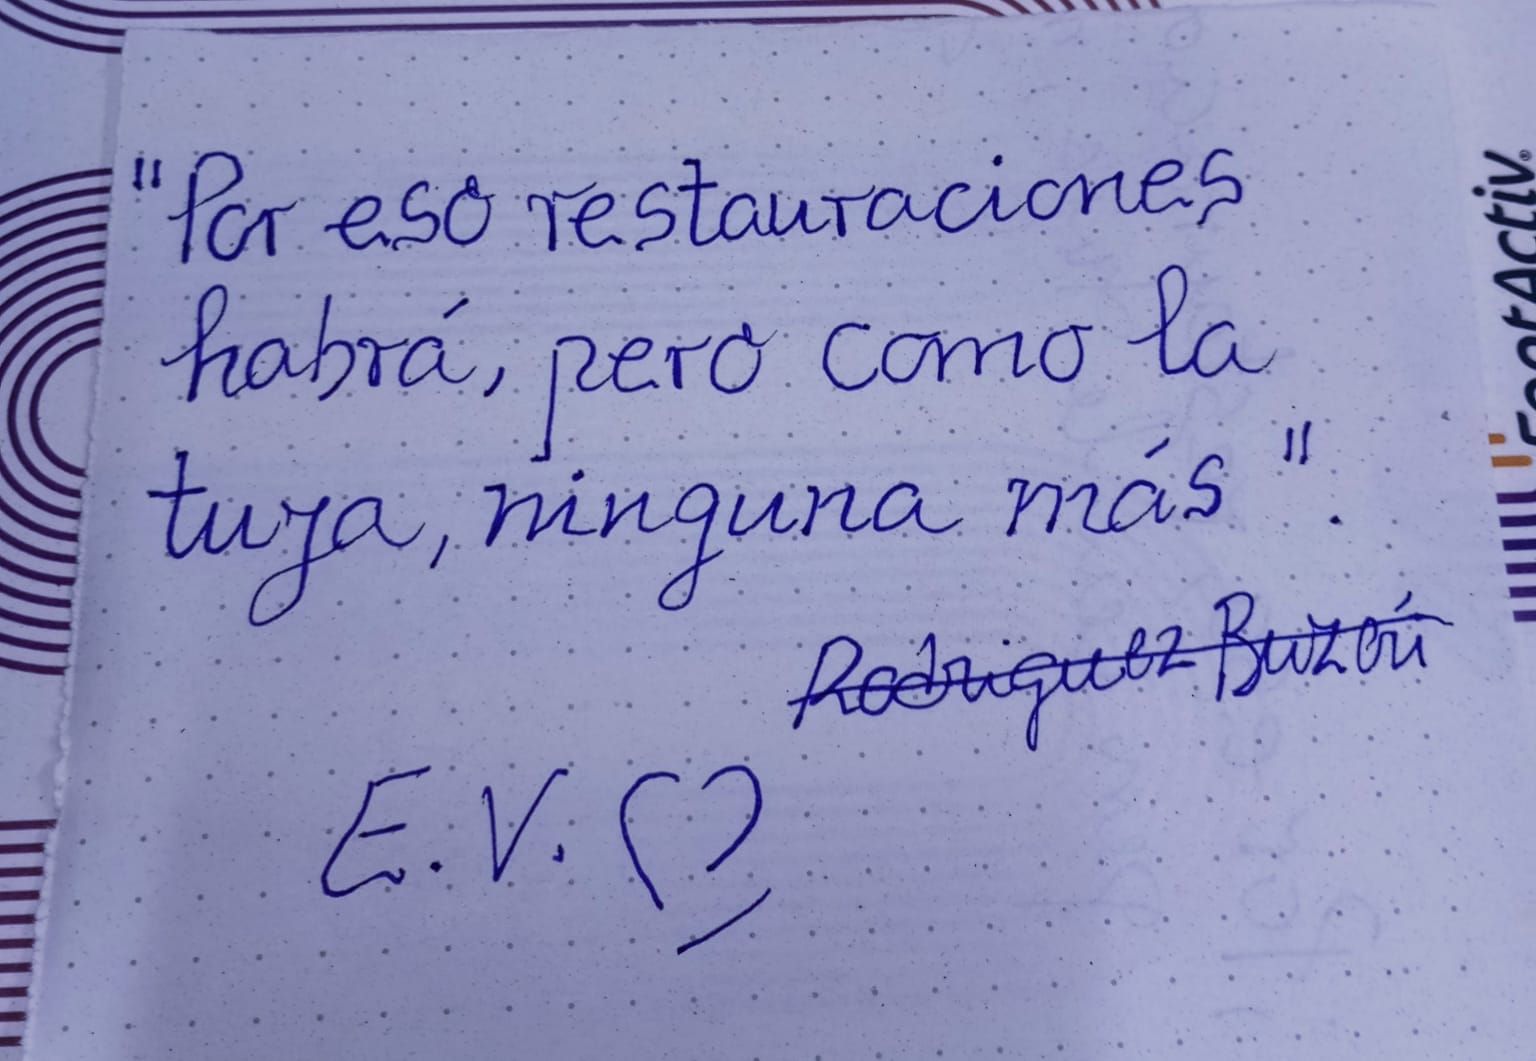 "Por eso restauraciones
habrá, pero como la
tuya, ninguna más".
Rodriguez Buzón
E.V.
FootActiv®